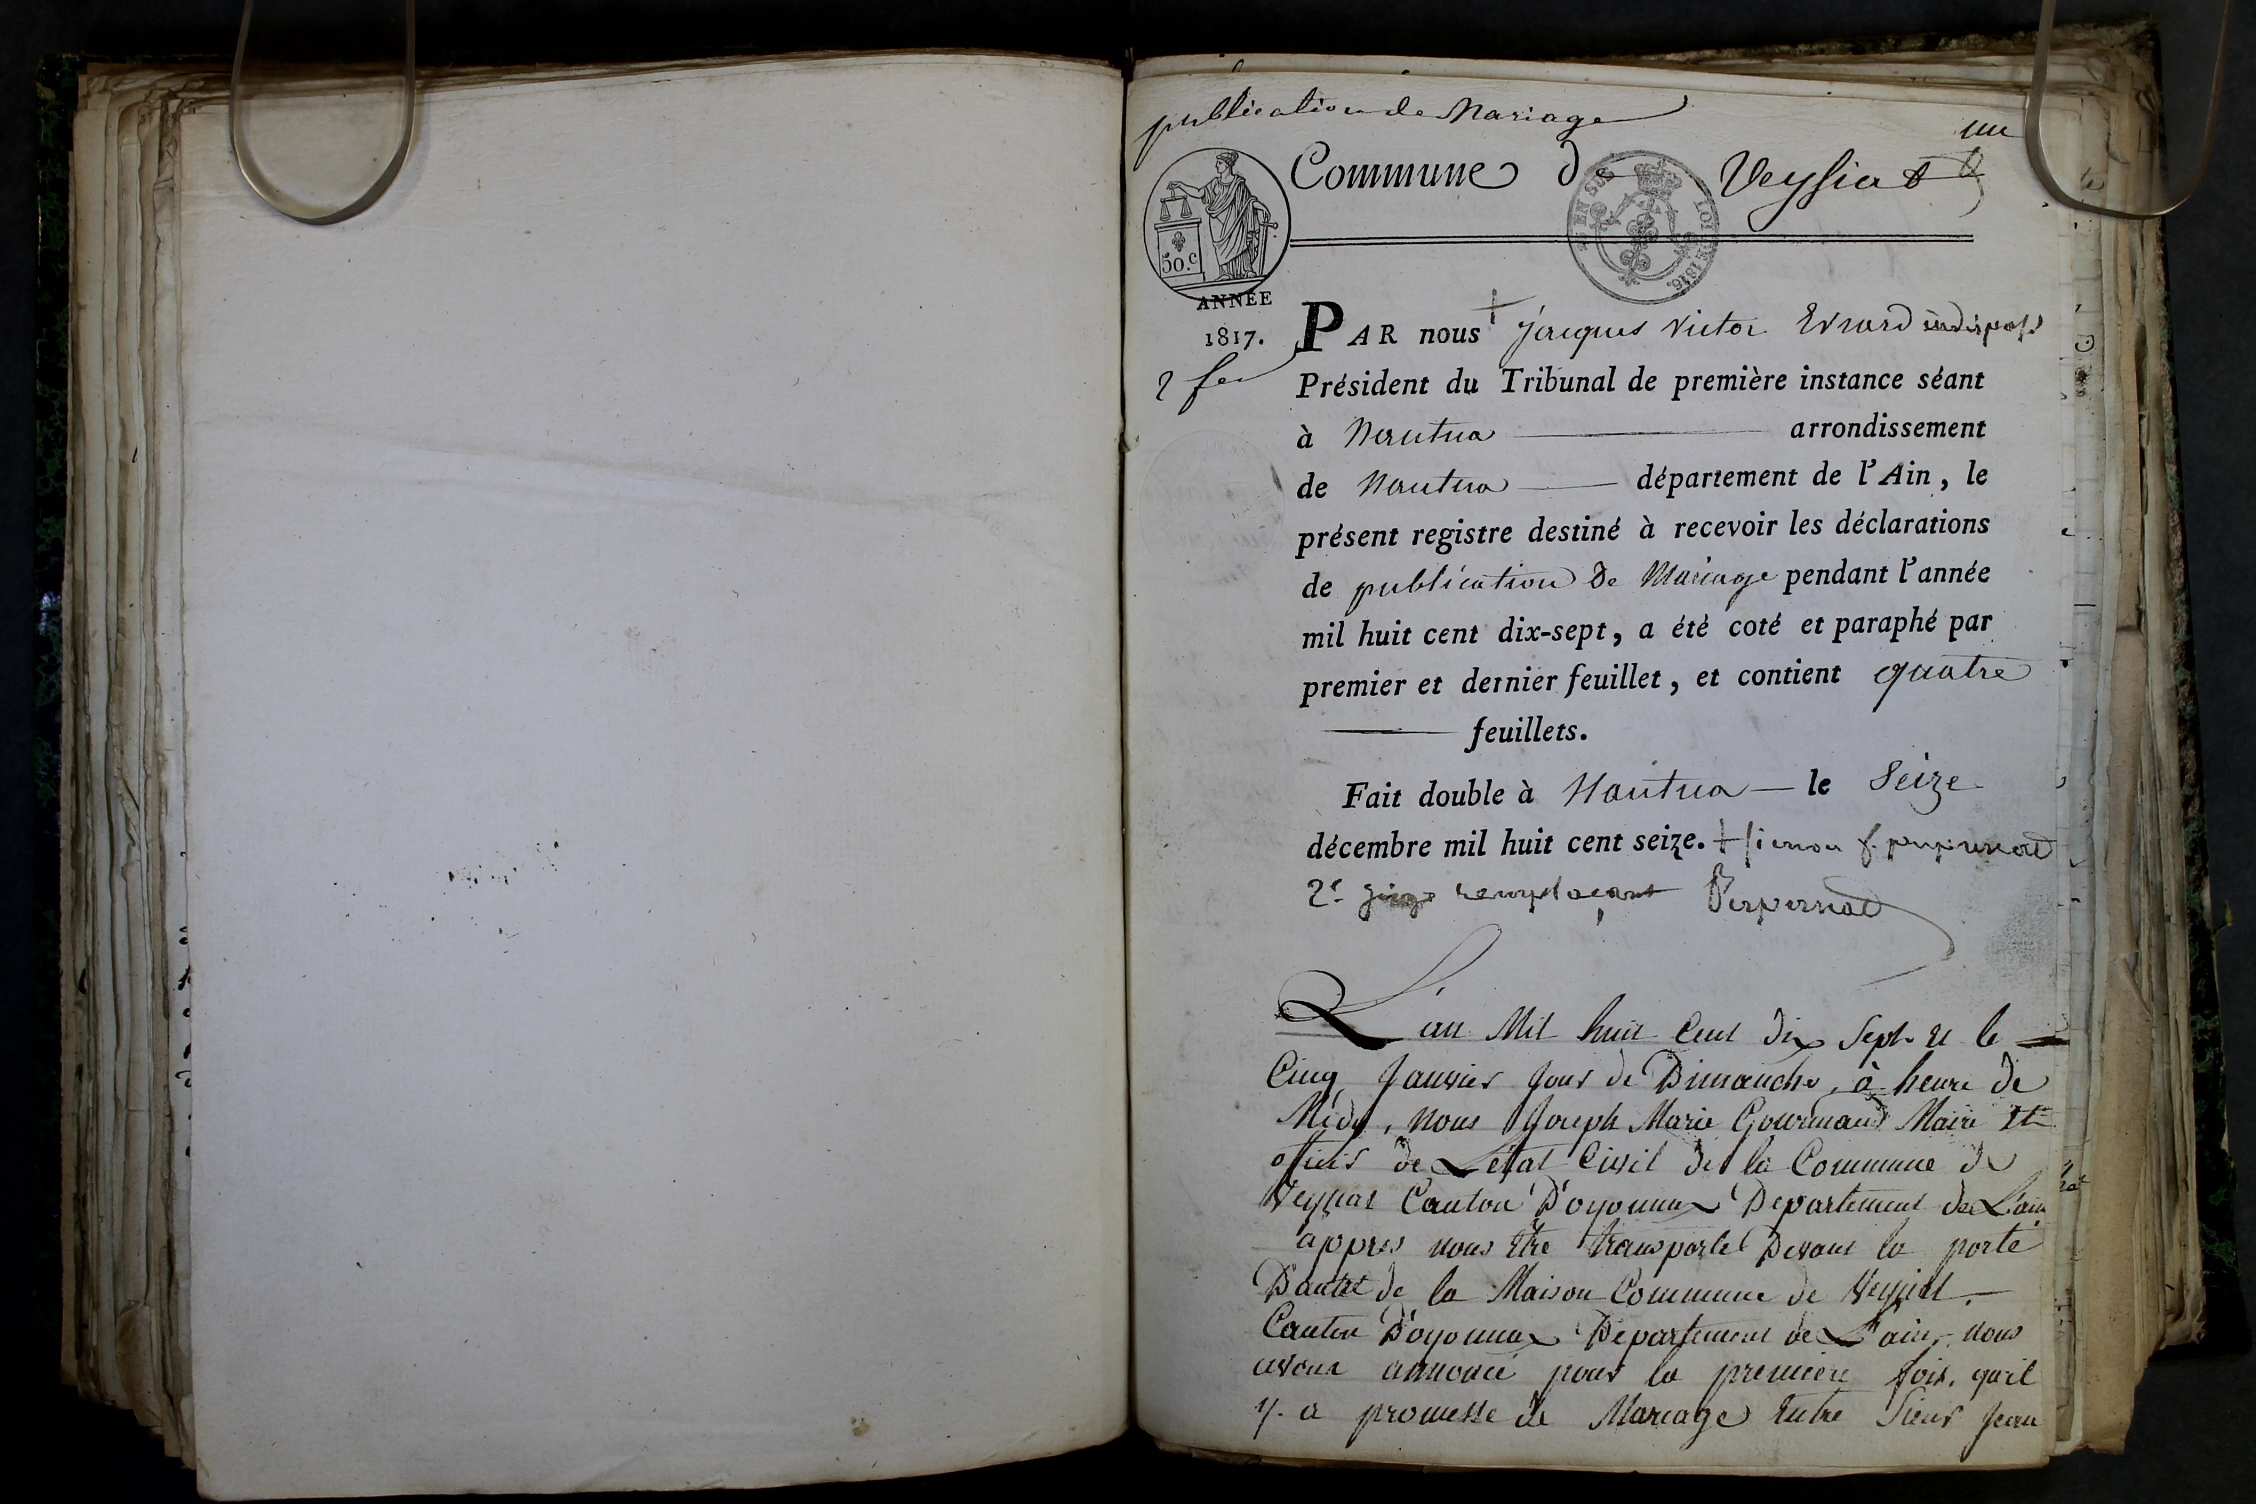 publication de Mariage
un
Commune de Veysiat
EN SUS
LOI DE 1816.
50.c
ANNÉE
1817.
2 fev
PAR nous + jacques victor Evrard indispose
Président du Tribunal de première instance séant
à Nantua arrondissement
de Nantua département de l'Ain, le
présent registre destiné à recevoir les déclarations
de publication de Mariage pendant l'année
mil huit cent dix-sept, a été coté et paraphé par
premier et dernier feuillet, et contient quatre
feuillets.
Fait double à Nantua le Seize
décembre mil huit cent seize. +
2e juge remplaçant
L'an Mil huit Cent dix Sept et le
Cinq Janvier Jour de Dimanche, à heure de
Midy, nous Joseph Marie Gourmand Maire et
officier de L'état Civil de la Commune de
Veysiat Canton D'oyonnax Departement de L'ain
appres nous être transporté Devant la porte
D'antré de la Maison Commune de Veysiat
Canton D'oyonnax Departement de L'ain, nous
avons annoncé pour la premiere fois, qu'il
y. a promesse de Mariage Entre Sieur Jean